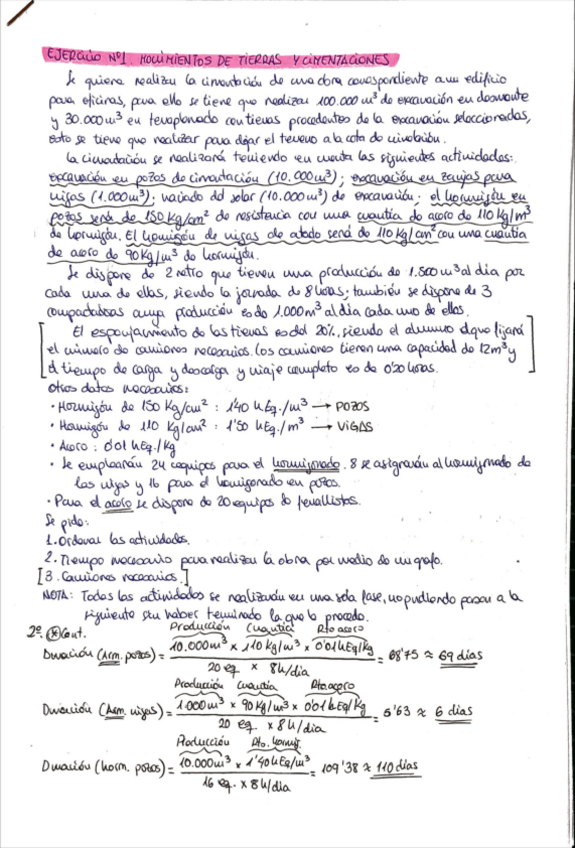 EJERCICIO Nº1. MOVIMIENTOS DE TIERRAS Y CIMENTACIONES
Se quiere realizar la cimentación de una obra correspondiente a un edificio
para oficinas, para ello se tiene que realizar 100.000 m³ de excavación en desmonte
y 30.000 m³ en terraplenado con tierras procedentes de la excavación seleccionadas,
esto se tiene que realizar para dejar el terreno a la cota de nivelación.
La cimentación se realizará teniendo en cuenta las siguientes actividades:
excavación en pozos de cimentación (10.000 m³); excavación en zanjas para
vigas (1.000 m³); vaciado del solar (10.000 m³) de excavación; el hormigón en
pozos será de 150 Kg/cm² de resistencia con una cuantía de acero de 110 Kg/m³
de hormigón. El hormigón de vigas de atado será de 110 Kg/cm² con una cuantía
de acero de 90 Kg/m³ de hormigón.
Se dispone de 2 retro que tienen una producción de 1.500 m³ al día por
cada una de ellas, siendo la jornada de 8 horas; también se dispone de 3
compactadoras cuya producción es de 1.000 m³ al día cada uno de ellos.
[ El esponjamiento de las tierras es del 20%, siendo el alumno el que fijará
el número de camiones necesarios. Los camiones tienen una capacidad de 12 m³ y
el tiempo de carga y descarga y viaje completo es de 0'20 horas. ]
Otros datos necesarios:
· Hormigón de 150 Kg/cm² : 1'40 h Eq./m³ → POZOS
· Hormigón de 110 Kg/cm² : 1'50 h Eq./m³ → VIGAS
· Acero : 0'01 h Eq./Kg
· Se emplearán 24 equipos para el hormigonado. 8 se asignarán al hormigonado de
las vigas y 16 para el hormigonado en pozos.
· Para el acero se dispone de 20 equipos de ferrallistas.
Se pide:
1. Ordenar las actividades.
2. Tiempo necesario para realizar la obra por medio de un grafo.
[ 3. Camiones necesarios. ]
NOTA: Todas las actividades se realizarán en una sola fase, no pudiendo pasar a la
siguiente sin haber terminado la que la precede.
2º. (*) Cont.
Producción Cuantía Rto acero
Duración (Arm. pozos) = 10.000 m³ × 110 Kg/m³ × 0'01 h Eq/Kg / 20 eq. × 8 h/día = 68'75 ≈ 69 días
Producción Cuantía Rto acero
Duración (Arm. vigas) = 1.000 m³ × 90 Kg/m³ × 0'01 h Eq/Kg / 20 eq. × 8 h/día = 5'63 ≈ 6 días
Producción Rto. hormig.
Duración (horm. pozos) = 10.000 m³ × 1'40 h Eq/m³ / 16 eq. × 8 h/día = 109'38 ≈ 110 días